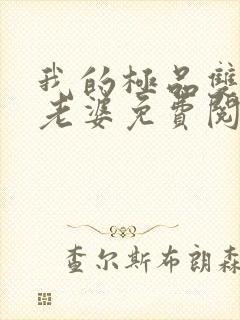 我的極品雙
老婆免費閱
查尔斯布朗森